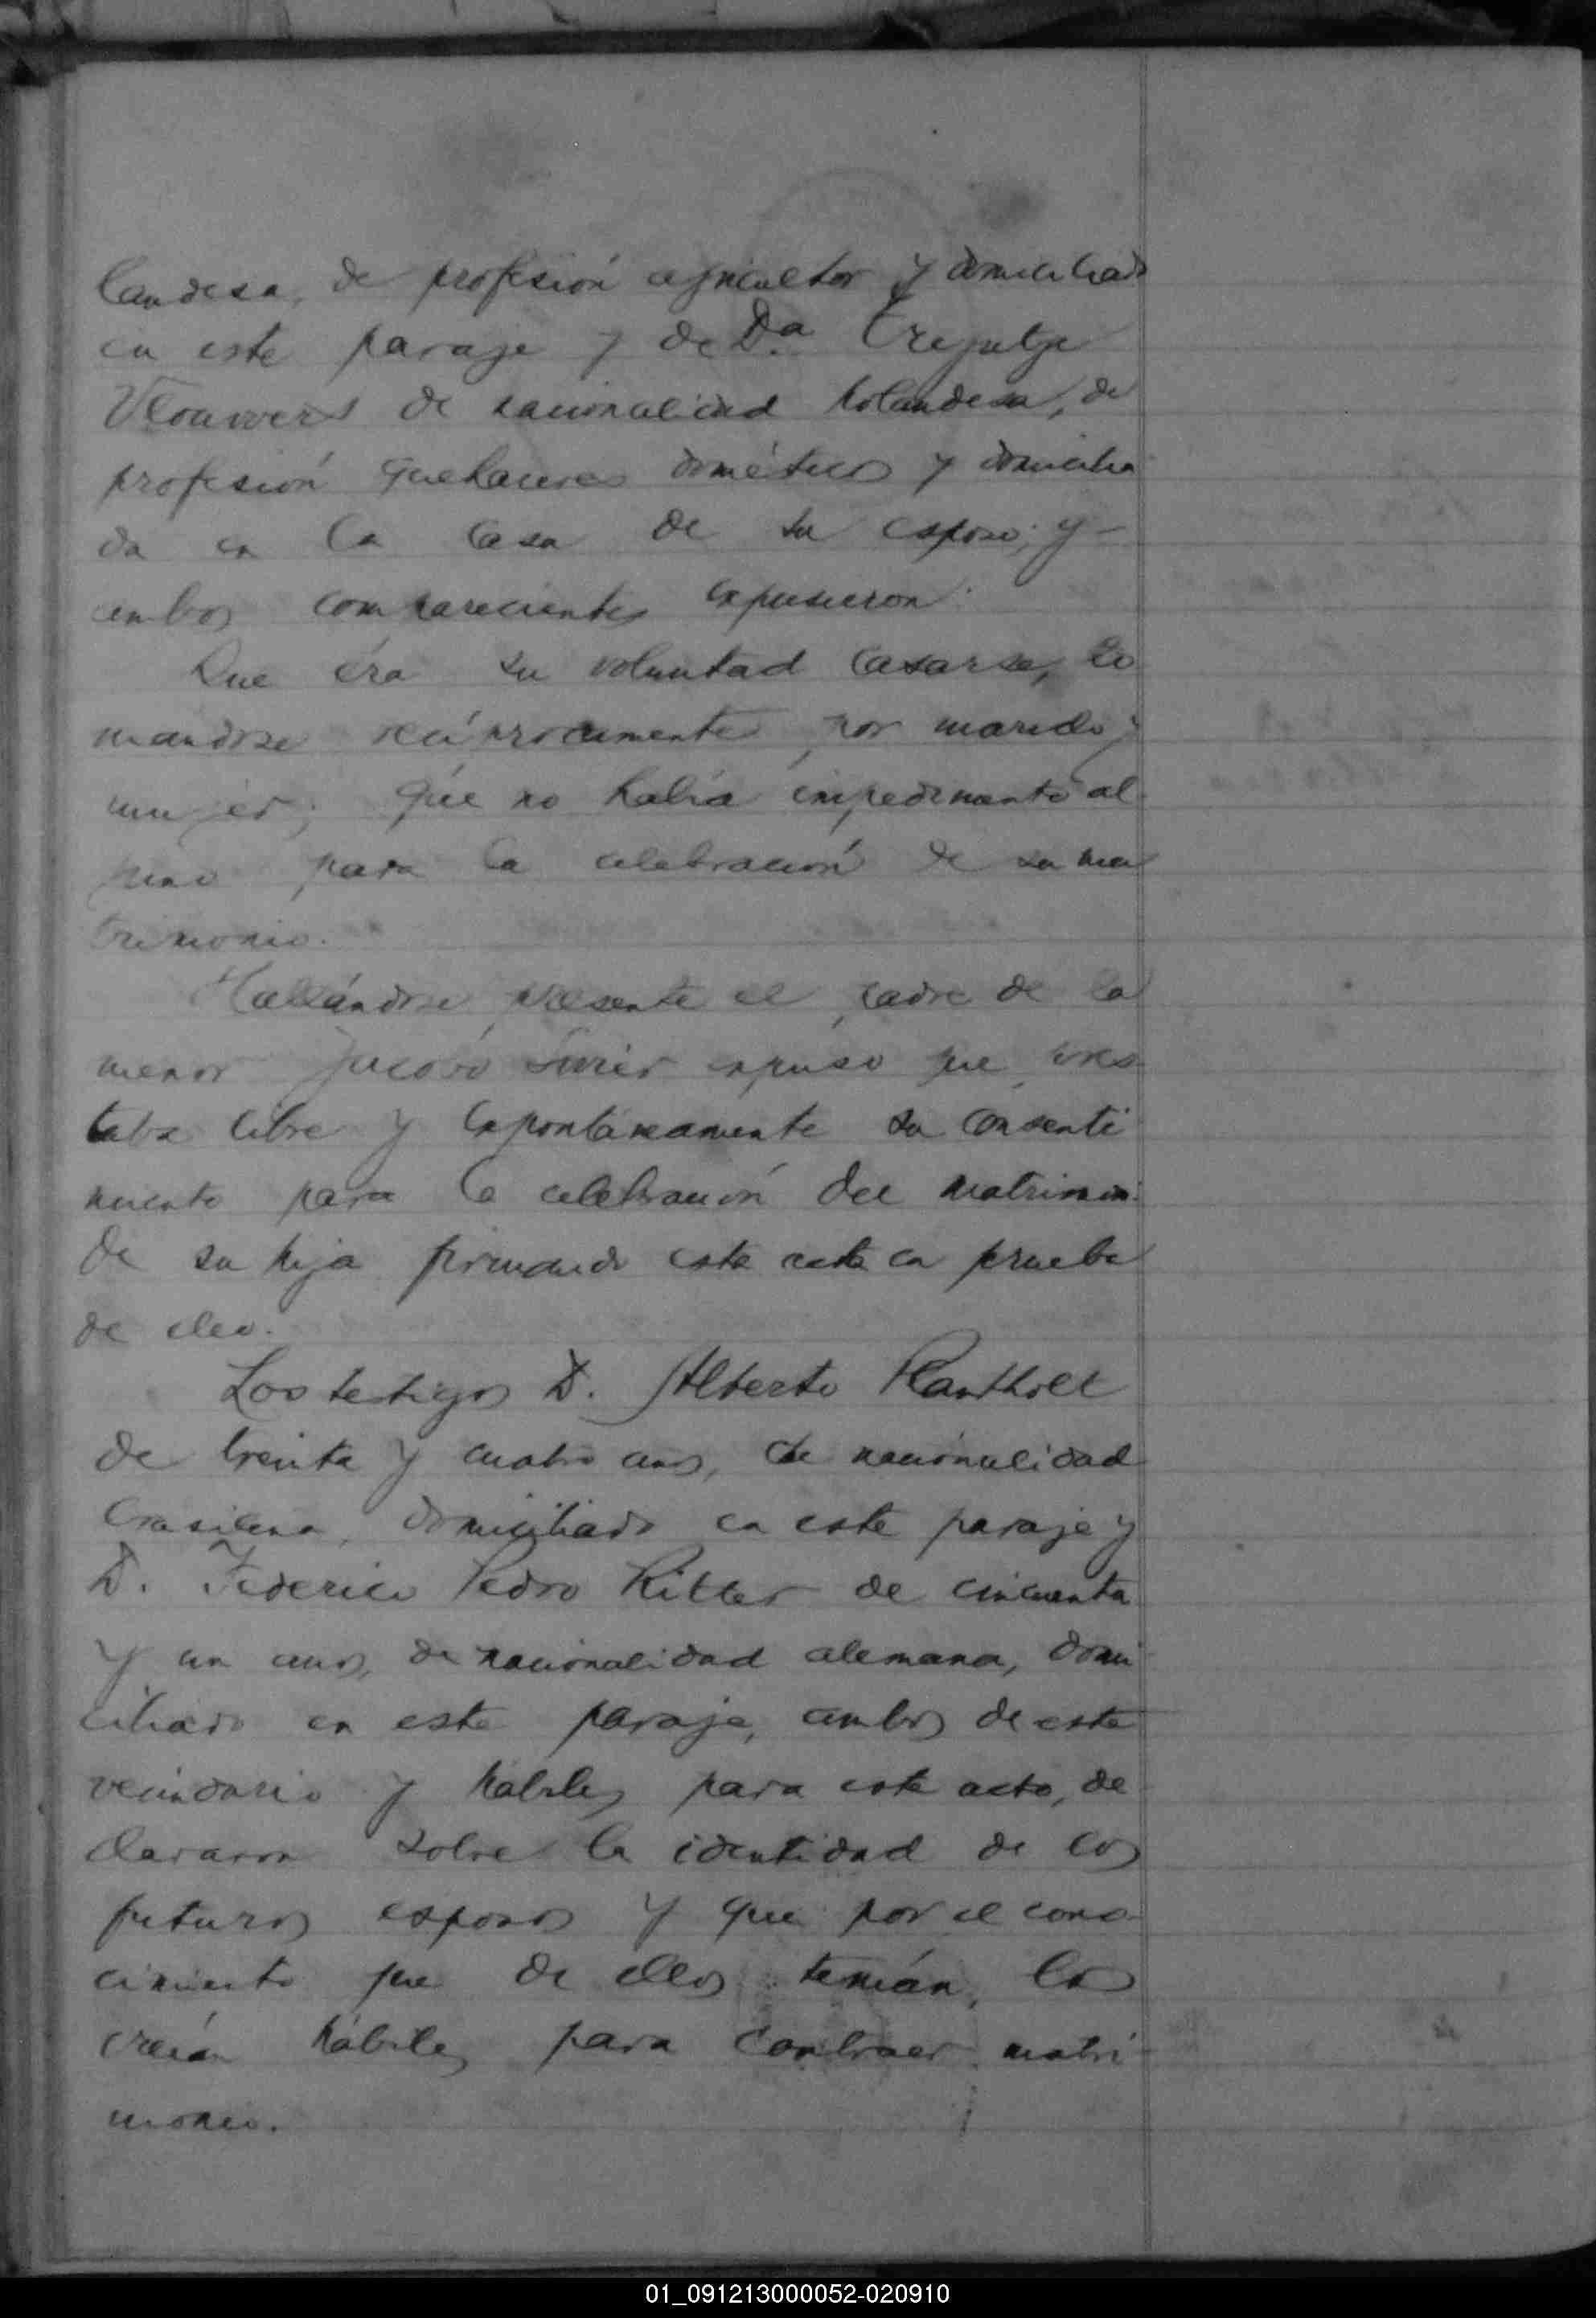 landesa, de profesión agricultor y domiciliado
en este paraje y de Da. Trejntje
Vlouwers de nacionalidad holandesa, de
profesión quehaceres dométicos y domicilia
da en la casa de su esposo; y
ambos comparecientes expusieron:
Que éra su voluntad casarse, to
mandose recíprocamente por marido y
mujer; que no había impedimento al
guno para la celebración de su ma
trimonio.
Hallándose presente el padre de la
menor Jacobo expuso que pres
taba libre y espontáneamente su consenti
miento para la celebración del matrimonio
de su hija firmando esta acta en prueba
de ello.
Los testigos D. Alberto Kantholt
de treinta y cuatro anos, de nacionalidad
brasilena, domiciliado en este paraje y
D. Federico Pedro Ritter de cincuenta
y un anos, de nacionalidad alemana, domi
ciliado en este paraje, ambos de este
vecindario y habiles para este acto, de
clararon sobre la identidad de los
futuros esposos y que por el cono-
cimiento que de ellos tenían, los
creían hábiles para contraer matri-
monio.
01_091213000052-020910